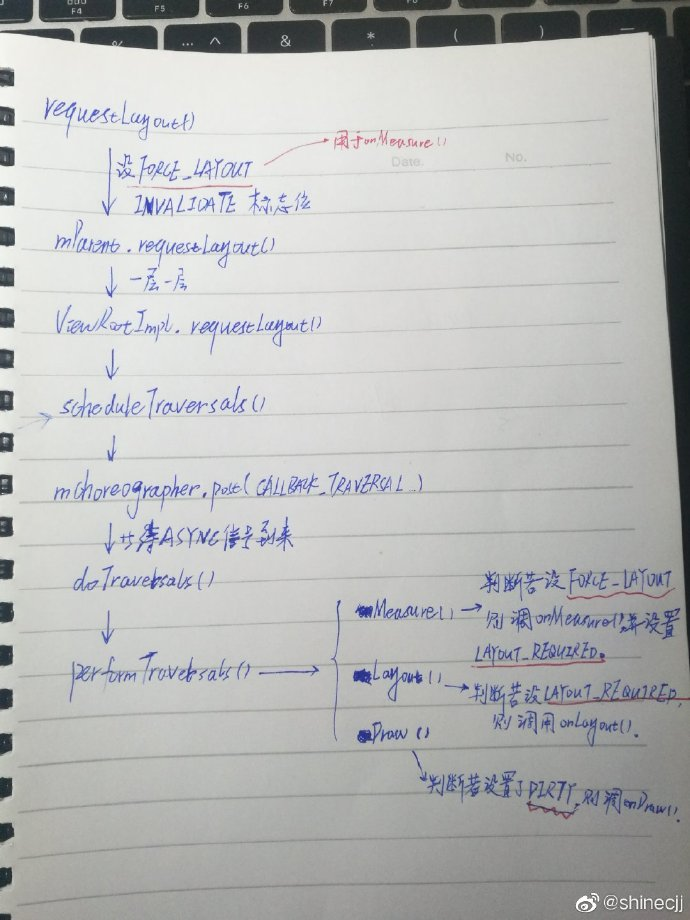 F4
F5
F6
F7
F8
F9
%
^
&
*
(
)
requestLayout()
设FORCE_LAYOUT
用于onMeasure()
Date.
No.
INVALIDATE 标志位
mParent.requestLayout()
一层一层
ViewRootImpl.requestLayout()
scheduleTraversals()
mChoreographer.post(CALLBACK_TRAVERSAL...)
等ASYNC信号到来
doTraversals()
performTraversals()
Measure()
判断若设FORCE_LAYOUT
则调onMeasure(),并设置
LAYOUT_REQUIRED。
Layout()
判断若设LAYOUT_REQUIRED,
则调用onLayout().
Draw()
判断若设置了DIRTY,则调onDraw().
@shinecjj